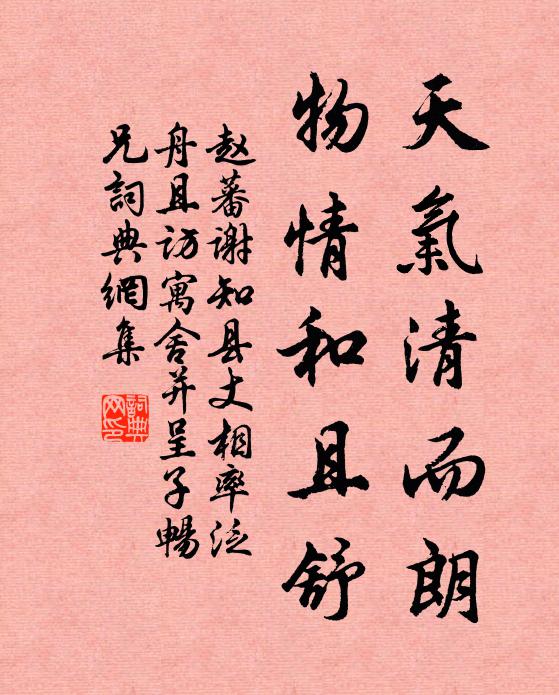 天氣清而朗
物情和且舒
赵蕃谢知县丈相率泛
舟且访寓舍并呈子暢
兄詞典網集
詞典
网印